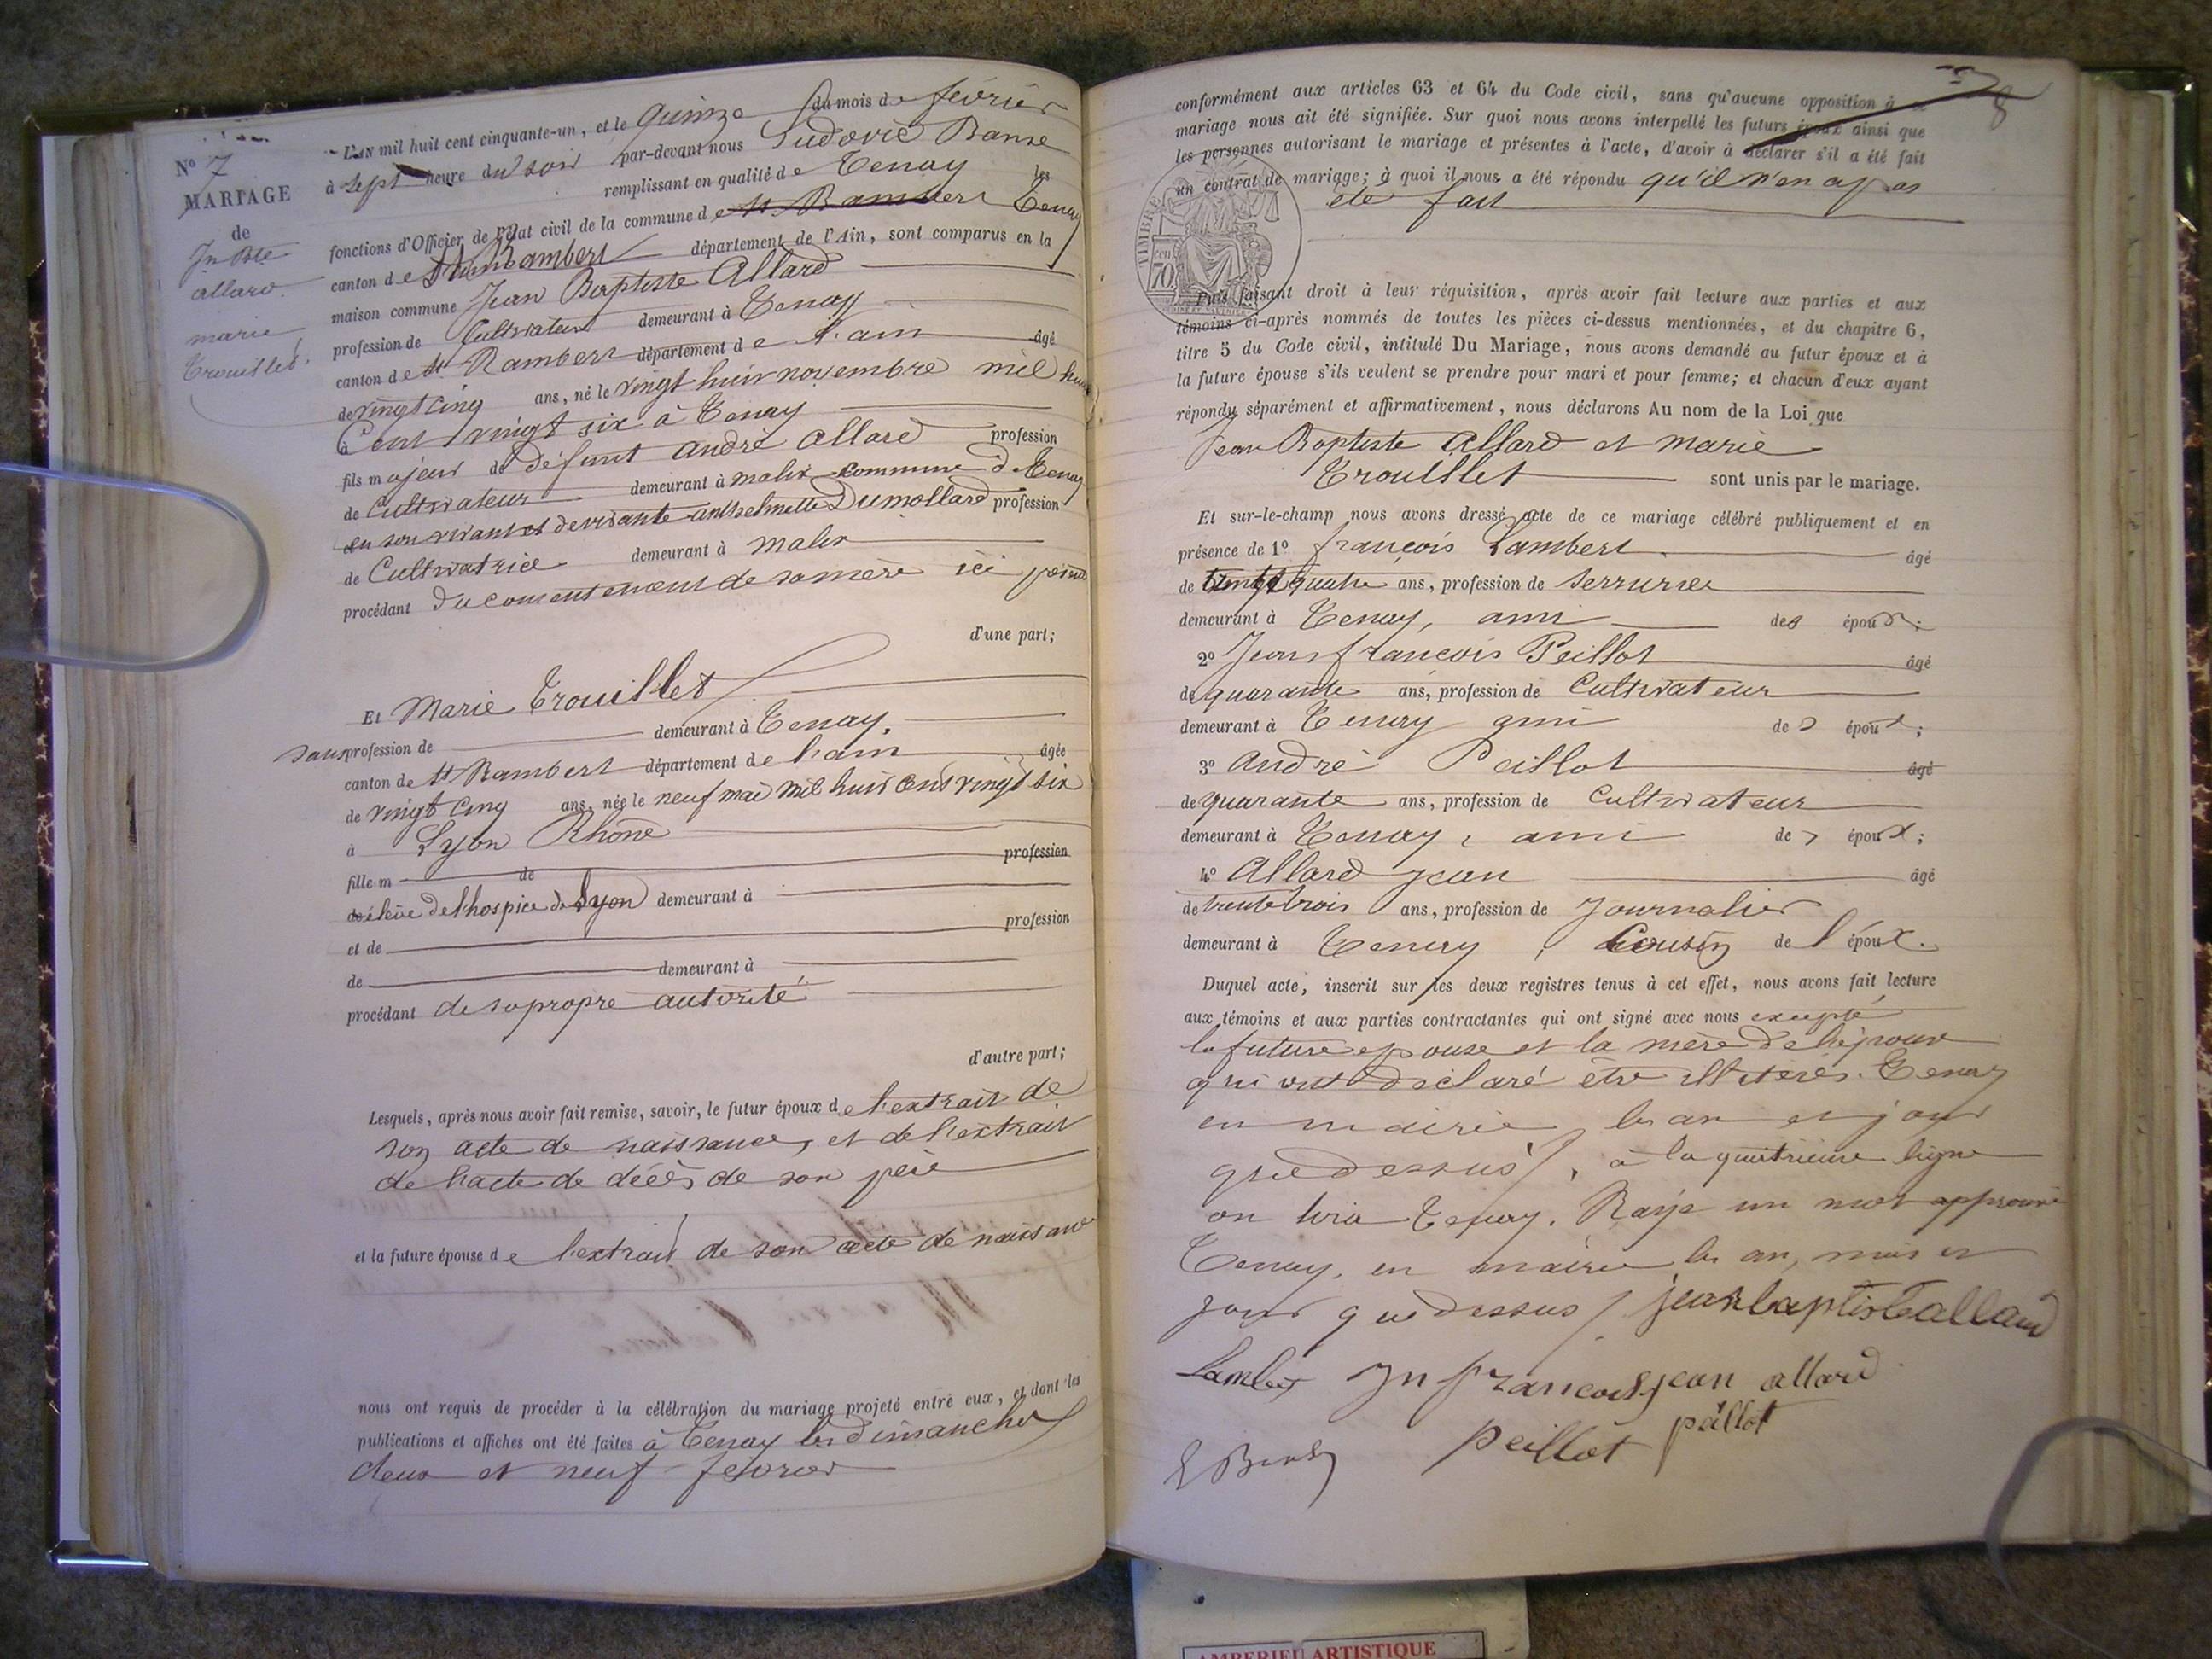 N° 7
MARIAGE
de
Jn Bte
allard
marie
Trouillet
L'AN mil huit cent cinquante-un, et le quinze du mois de février
à sept heure du soir par-devant nous Ludovic
remplissant en qualité de Tenay les
fonctions d'Officier de l'état civil de la commune de St Rambert Tenay
canton de St Rambert département de l'Ain, sont comparus en la
maison commune Jean Baptiste Allard
profession de Cultivateur demeurant à Tenay
canton de St Rambert département de l'ain âgé
de vingt cinq ans, né le vingt huit novembre mil huit
à Cent vingt six à Tenay
fils majeur de défunt André allard profession
de Cultivateur demeurant à malix commune de Tenay
en son vivant et de vivante anthelmette Dumollard profession
de Cultivatrice demeurant à malix
procédant du consentement de sa mère ici
d'une part;
Et Marie Trouillet
sans profession de demeurant à Tenay,
canton de St Rambert département de l'ain âgée
de vingt cinq ans, née le neuf mai mil huit cent vingt six
à Lyon Rhône
fille m de profession
de élève de l'hospice de Lyon demeurant à
et de profession
de demeurant à
procédant de sa propre autorité
d'autre part;
Lesquels, après nous avoir fait remise, savoir, le futur époux de l'extrait de
son acte de naissance, et de l'extrait
de l'acte de décès de son père
et la future épouse de l'extrait de son acte de naissance
nous ont requis de procéder à la célébration du mariage projeté entre eux, et dont les
publications et affiches ont été faites à Tenay les dimanches
deux et neuf fevrier
8
conformément aux articles 63 et 64 du Code civil, sans qu'aucune opposition à ce
mariage nous ait été signifiée. Sur quoi nous avons interpellé les futurs époux ainsi que
les personnes autorisant le mariage et présentes à l'acte, d'avoir à déclarer s'il a été fait
un contrat de mariage; à quoi il nous a été répondu qu'il n'en a pas
été fait
TIMBRE
70
Puis faisant droit à leur réquisition, après avoir fait lecture aux parties et aux
témoins ci-après nommés de toutes les pièces ci-dessus mentionnées, et du chapitre 6,
titre 5 du Code civil, intitulé Du Mariage, nous avons demandé au futur époux et à
la future épouse s'ils veulent se prendre pour mari et pour femme; et chacun d'eux ayant
répondu séparément et affirmativement, nous déclarons Au nom de la Loi que
Jean Baptiste allard et marie
Trouillet sont unis par le mariage.
Et sur-le-champ nous avons dressé acte de ce mariage célébré publiquement et en
présence de 1° françois Lambert âgé
de quatre ans, profession de serrurier
demeurant à Tenay, ami des époux;
2° Jean françois Peillot âgé
de quarante ans, profession de Cultivateur
demeurant à Tenay ami des époux;
3° André Peillot âgé
de quarante ans, profession de Cultivateur
demeurant à Tenay, ami des époux;
4° Allard jean âgé
de trente trois ans, profession de Journalier
demeurant à Tenay, Cousin de l'époux.
Duquel acte, inscrit sur les deux registres tenus à cet effet, nous avons fait lecture
aux témoins et aux parties contractantes qui ont signé avec nous excepté
la future epouse et la mère de l'époux
qui ont déclaré être illiterés. Tenay
en mairie, les an et jour
que dessus, à la quatrieme ligne
on lira Tenay. Rayé un mot approuvé
Tenay, en mairie les an, mois et
jour que dessus jean baptiste allard
Lambert Jn francois jean allard
peillot peillot
AMBERIEU ARTISTIQUE